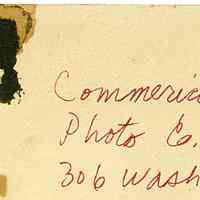 Commeric
Photo C.
306 Wash